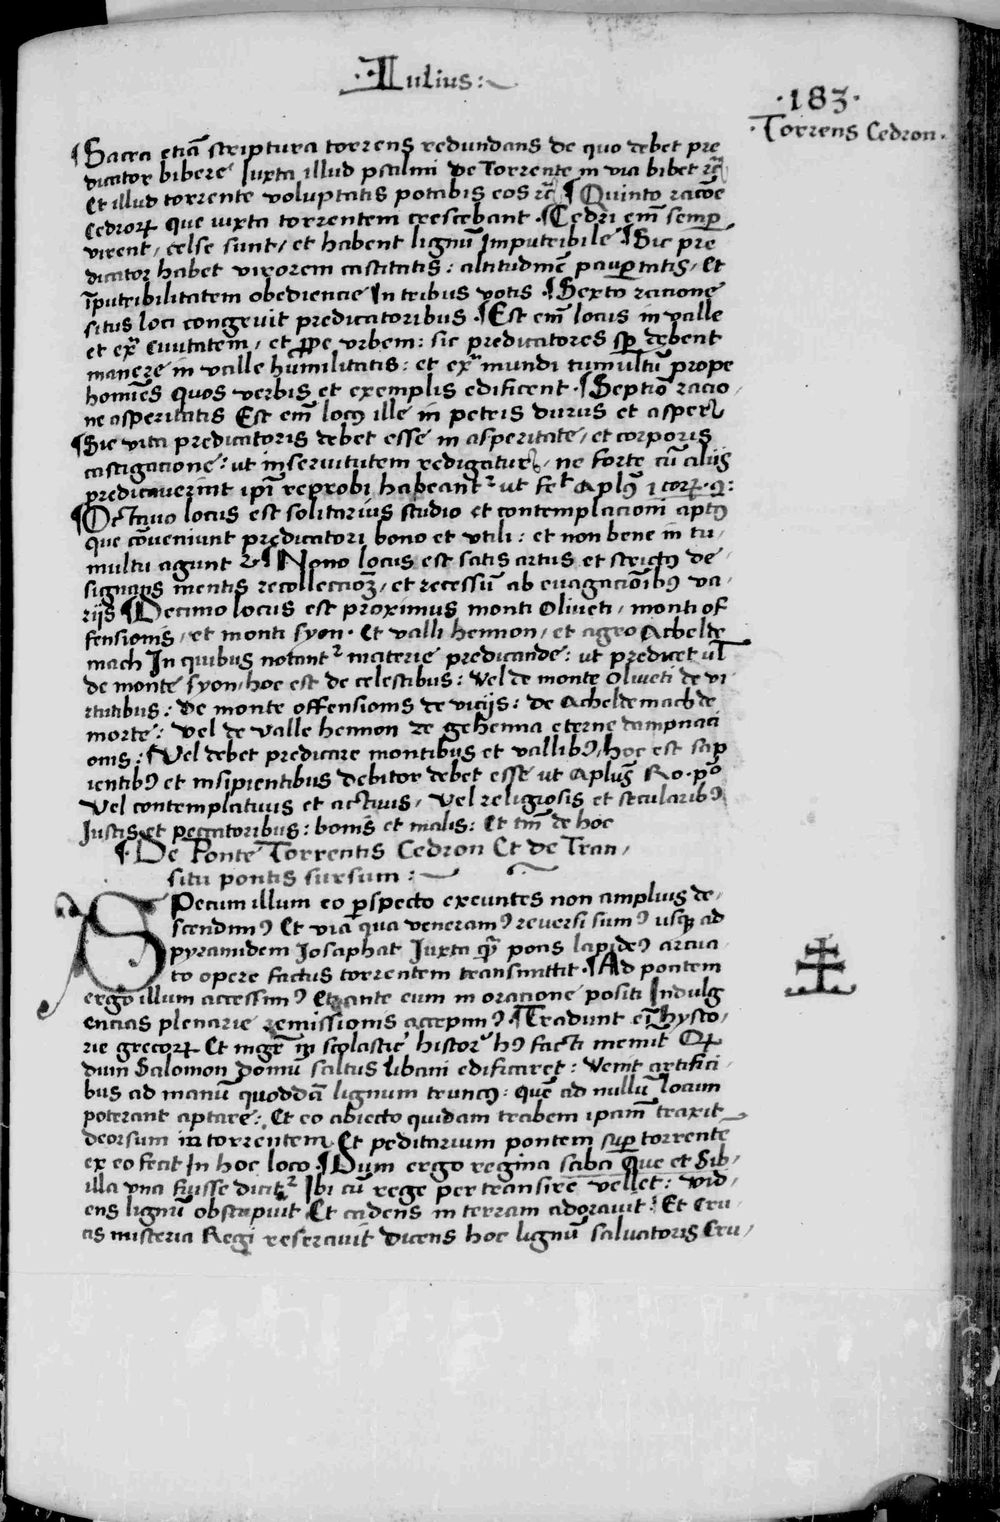 ·Iulius:
·183·
·Torrens Cedron·
¶Sacra etiã scriptura torrens redundans de quo debet pre
dicator bibere Iuxta illud psalmi De Torrente in via bibet rc̃
Et illud torrente voluptatis potabis eos rc̃ ¶Quinto racõe
Cedrorꝝ que iuxta torrentem crescebant ·¶Cedri em̃ semꝑ
virent, celse sunt, et habent lignũ Imputribile ¶Sic pre
dicator habet virorem castitatis: altitudinẽ pauꝑtatis, Et
ĩputribilitatem obediencie In tribus votis ·¶Sexto racione
situs loci congruit predicatoribus ·¶Est em̃ locus in valle
et exᵃ Ciuitatem, et ꝓpe vrbem: sic predicatores sꝑ debent
manere in valle humilitatis: et exᵃ mundi tumultũ prope
homines quos verbis et exemplis edificent ·¶Septĩo racio,
ne asperitatis Est em̃ locꝰ ille in petris durus et asper
¶Sic vita predicatoris debet esse in asperitate, et corporis
castigacione: ut in seruitutem redigatur, ne forte cũ aliis
predicauerint ipĩ reprobi habeantᵘʳ ut feᵗ Aplꝰ 1 corꝝ·9:
¶Octauo locus est solitarius studio et contemplacioni aptꝰ
que cõueniunt predicatori bono et vtili: et non bene in tu,
multu agunt ¶Nono locus est satis artus et strictꝰ de,
signans mentis recollectioꝫ, et recessũ ab euagaciõibꝰ va,
riis ¶Decimo locus est proximus monti Oliueti, monti of
fensionis, et monti syon· Et valli hennon, et agro Achelde
mach In quibus notantᵘʳ materie predicande: ut predicet ul̃
de monte syon, hoc est de celestibus: Vel de monte Oliueti de vi
rtutibus: De monte offensionis de viciis: De Acheldemach de
morte: Vel de valle hennon de gehenna eterne dampnaci
onis: ¶Vel debet predicare montibus et vallibꝰ, hoc est sap
ientibꝰ et insipientibus debitor debet esse ut Aplus̃ Ro·pº
Vel contemplatiuis et actiuis, Vel religiosis et secularibꝰ
Iustis et peccatoribus: bonis et malis: Et tm̃ de hoc
¶·De Ponte Torrentis Cedron Et de Tran,
situ pontis sursum:
SPecum illum eo ꝑspecto exeuntes non amplius de,
scendimꝰ Et via qua veneramꝰ reuersi sumꝰ usqꝫ ad
pyramidem Iosaphat Iuxta qᵃ̃ pons lapideꝰ arcua,
to opere factus torrentem transmittit ·¶Ad pontem
ergo illum accessimꝰ Et ante eum in oracione positi Indulg
encias plenarie remissionis accepimꝰ ·¶Tradunt em̃ hysto,
rie grecorꝝ Et mgr̃ in scolastic̃ histor̃ hꝰ facti meminit Qꝝ
dum Salomon domũ saltus Libani edificaret: Venit artifici,
bus ad manũ quoddã lignum truncꝰ: quẽ ad nullũ locum
poterant aptare: Et eo abiecto quidam trabem ipam̃ traxit
deorsum in torrentem Et peditarium pontem suꝑ torrentẽ
ex eo fecit In hoc loco ·¶Dum ergo regina saba Que et Sib,
illa vna fuisse dicitᵘʳ Ibi cũ rege per transire vellet: Vid,
ens lignũ obstupuit Et cadens in terram adorauit: Et Cru,
cis misteria Regi reserauit dicens hoc lignũ saluatoris Cru,